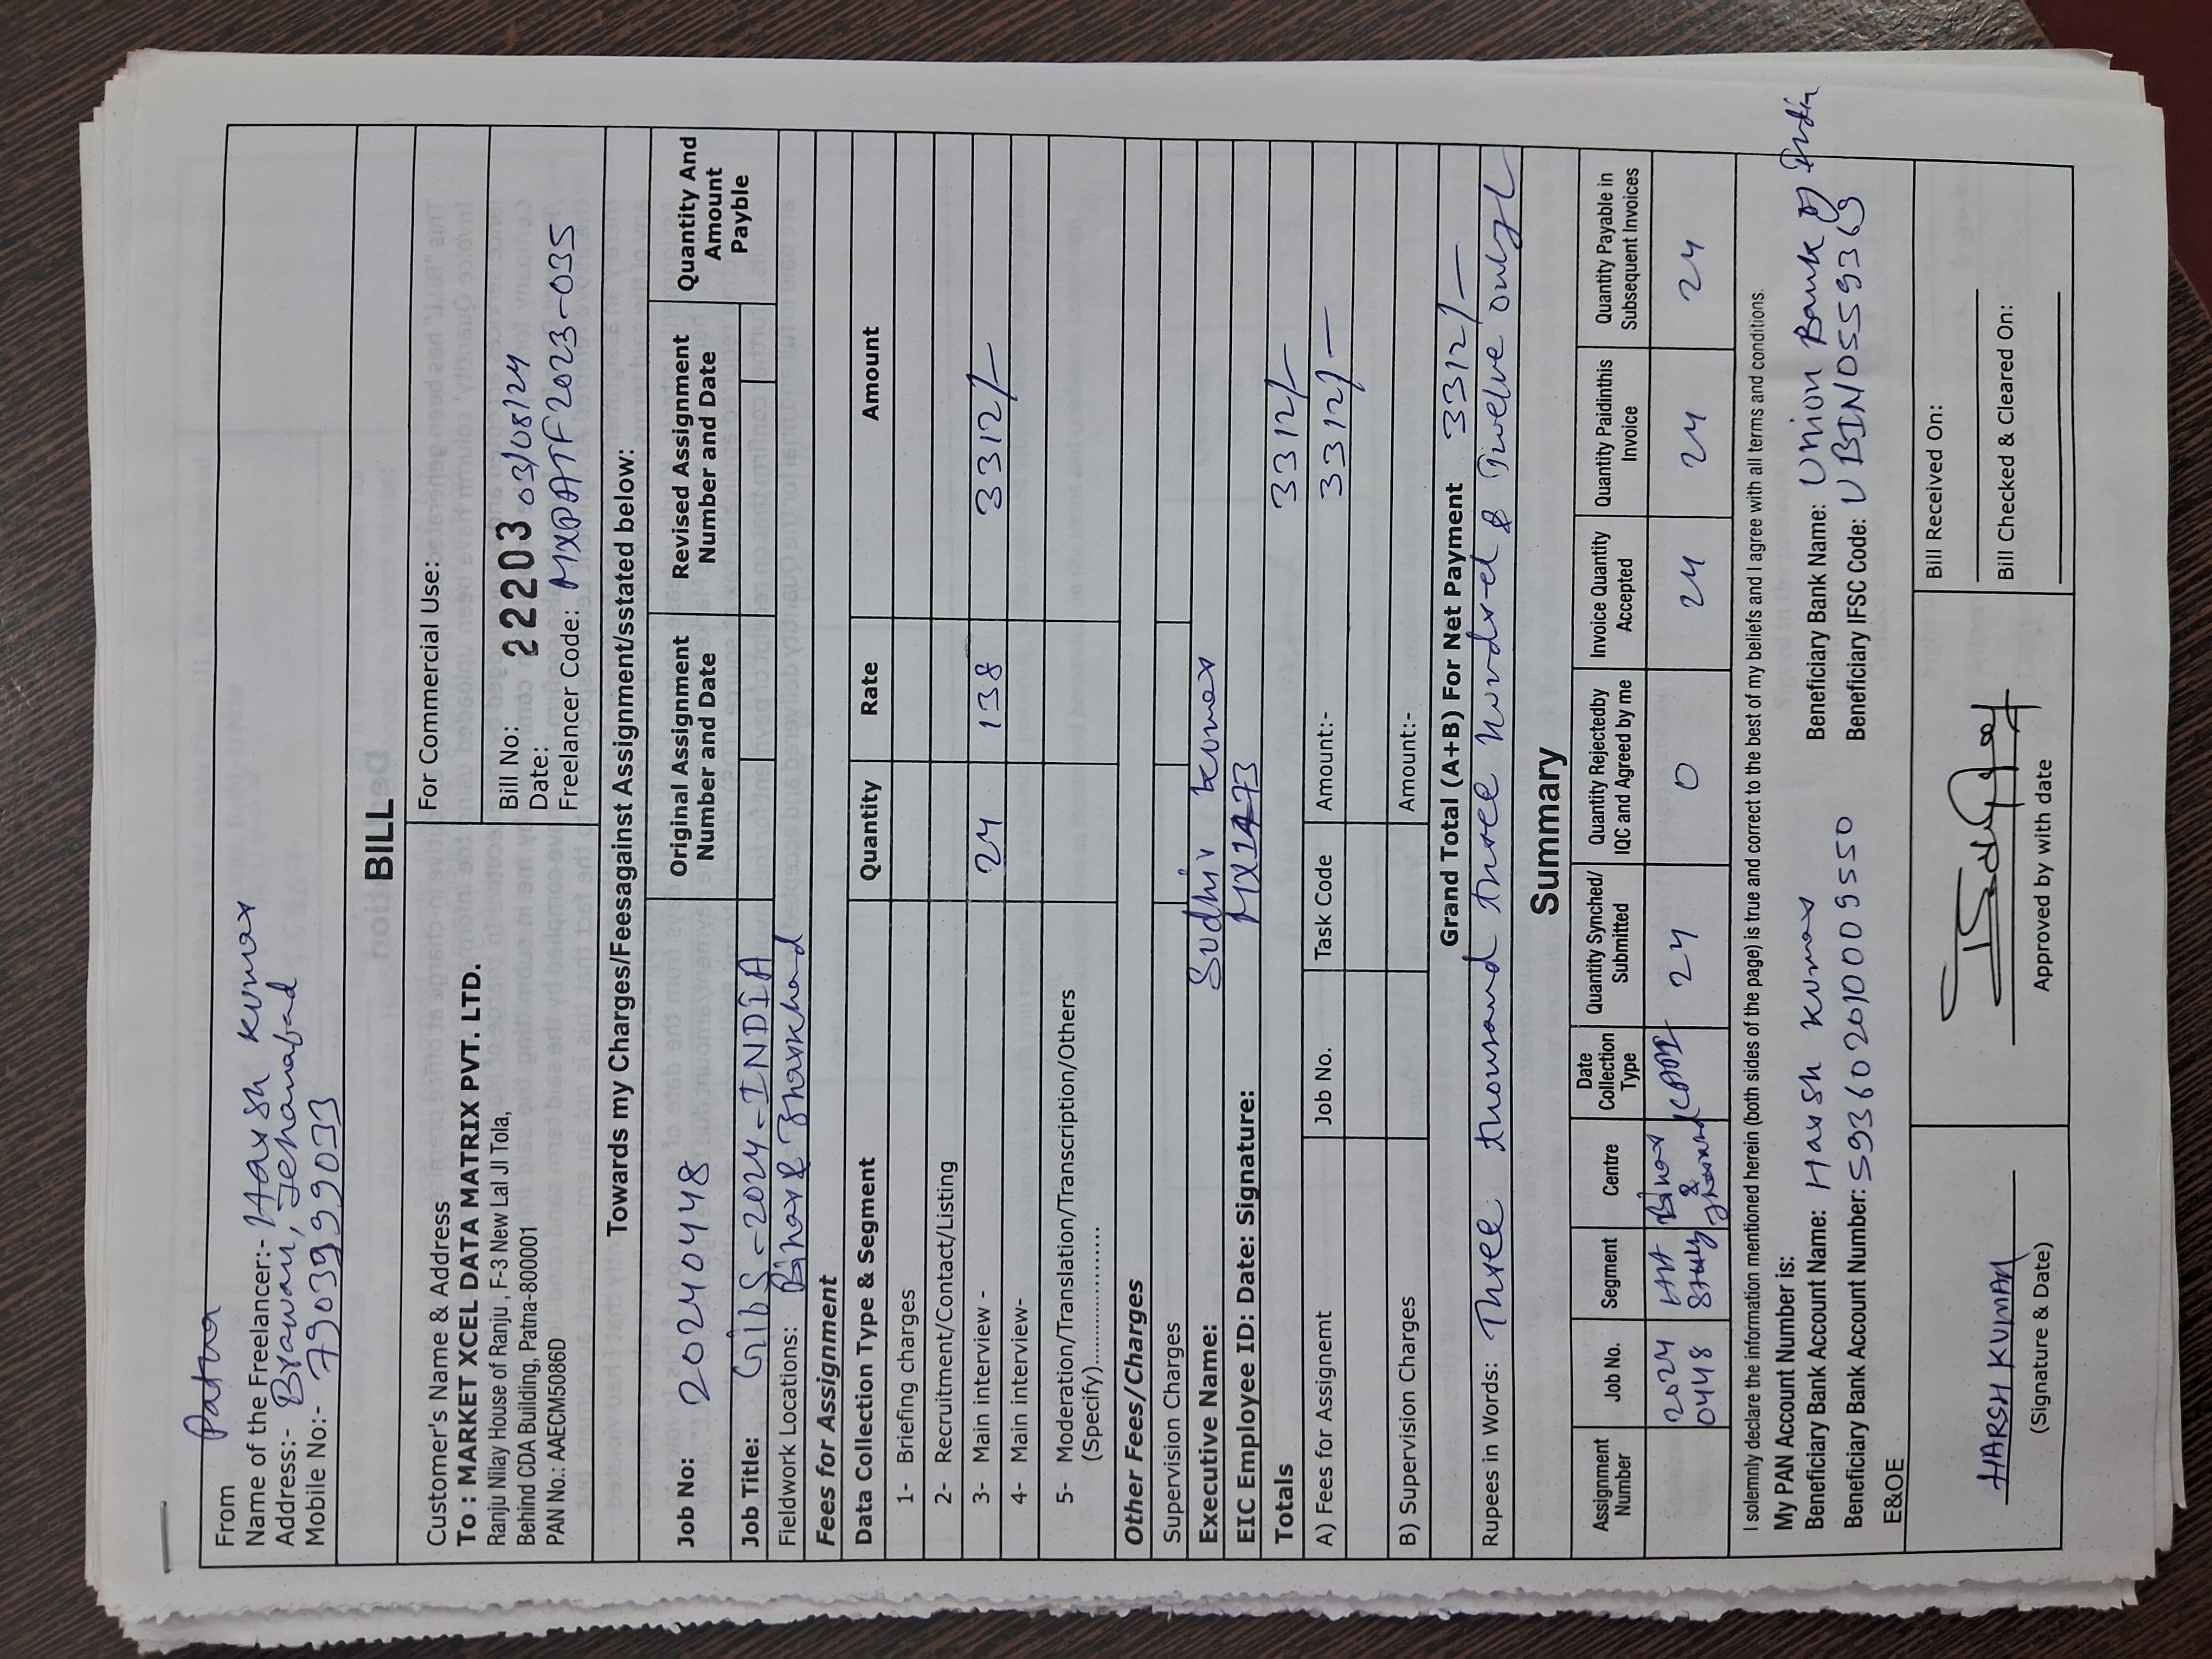 Patna
From
Name of the Freelancer:- Harsh Kumar
Address:- Brawan, Jehanabad
Mobile No:- 7903999033
BILL
Customer's Name & Address
To : MARKET XCEL DATA MATRIX PVT. LTD.
Ranju Nilay House of Ranju , F-3 New Lal JI Tola,
Behind CDA Building, Patna-8000001
PAN No.: AAECM5086D
For Commercial Use:
Bill No: 22203
Date: 03/08/24
Freelancer Code: MXPATF2023-035
Towards my Charges/Feesagainst Assignment/sstated below:
Job No: 20240448
Original Assignment Number and Date
Revised Assignment Number and Date
Quantity And Amount Payble
Job Title: GIbS-2024-INDIA
Fieldwork Locations: Bihar & Jharkhand
Fees for Assignment
Data Collection Type & Segment Quantity Rate Amount
1- Briefing charges
2- Recruitment/Contact/Listing
3- Main interview - 24 138 3312/-
4- Main interview-
5- Moderation/Translation/Transcription/Others
(Specify)..................
Other Fees/Charges
Supervision Charges
Executive Name: Sudhir Kumar
EIC Employee ID: Date: Signature: MX1473
Totals 3312/-
A) Fees for Assignemt Job No. Task Code Amount:- 3312/-
B) Supervision Charges Amount:-
Grand Total (A+B) For Net Payment 3312/-
Rupees in Words: Three thousand three hundred & Twelve only
Summary
Assignment Number Job No. Segment Centre Date Collection Type Quantity Synched/ Submitted Quantity Rejectedby IQC and Agreed by me Invoice Quantity Accepted Quantity Paidinthis Invoice Quantity Payable in Subsequent Invoices
2024 0448 HH Study Bihar & Jharkhand CAPI 24 0 24 24 24
I solemnly declare the information mentioned herein (both sides of the page) is true and correct to the best of my beliefs and I agree with all terms and conditions.
My PAN Account Number is:
Beneficiary Bank Account Name: Harsh Kumar Beneficiary Bank Name: Union Bank of India
Beneficiary Bank Account Number: 593602010009550 Beneficiary IFSC Code: UBIN0559369
E&OE
HARSH KUMAR
(Signature & Date)
Approved by with date
Bill Received On:
Bill Checked & Cleared On: